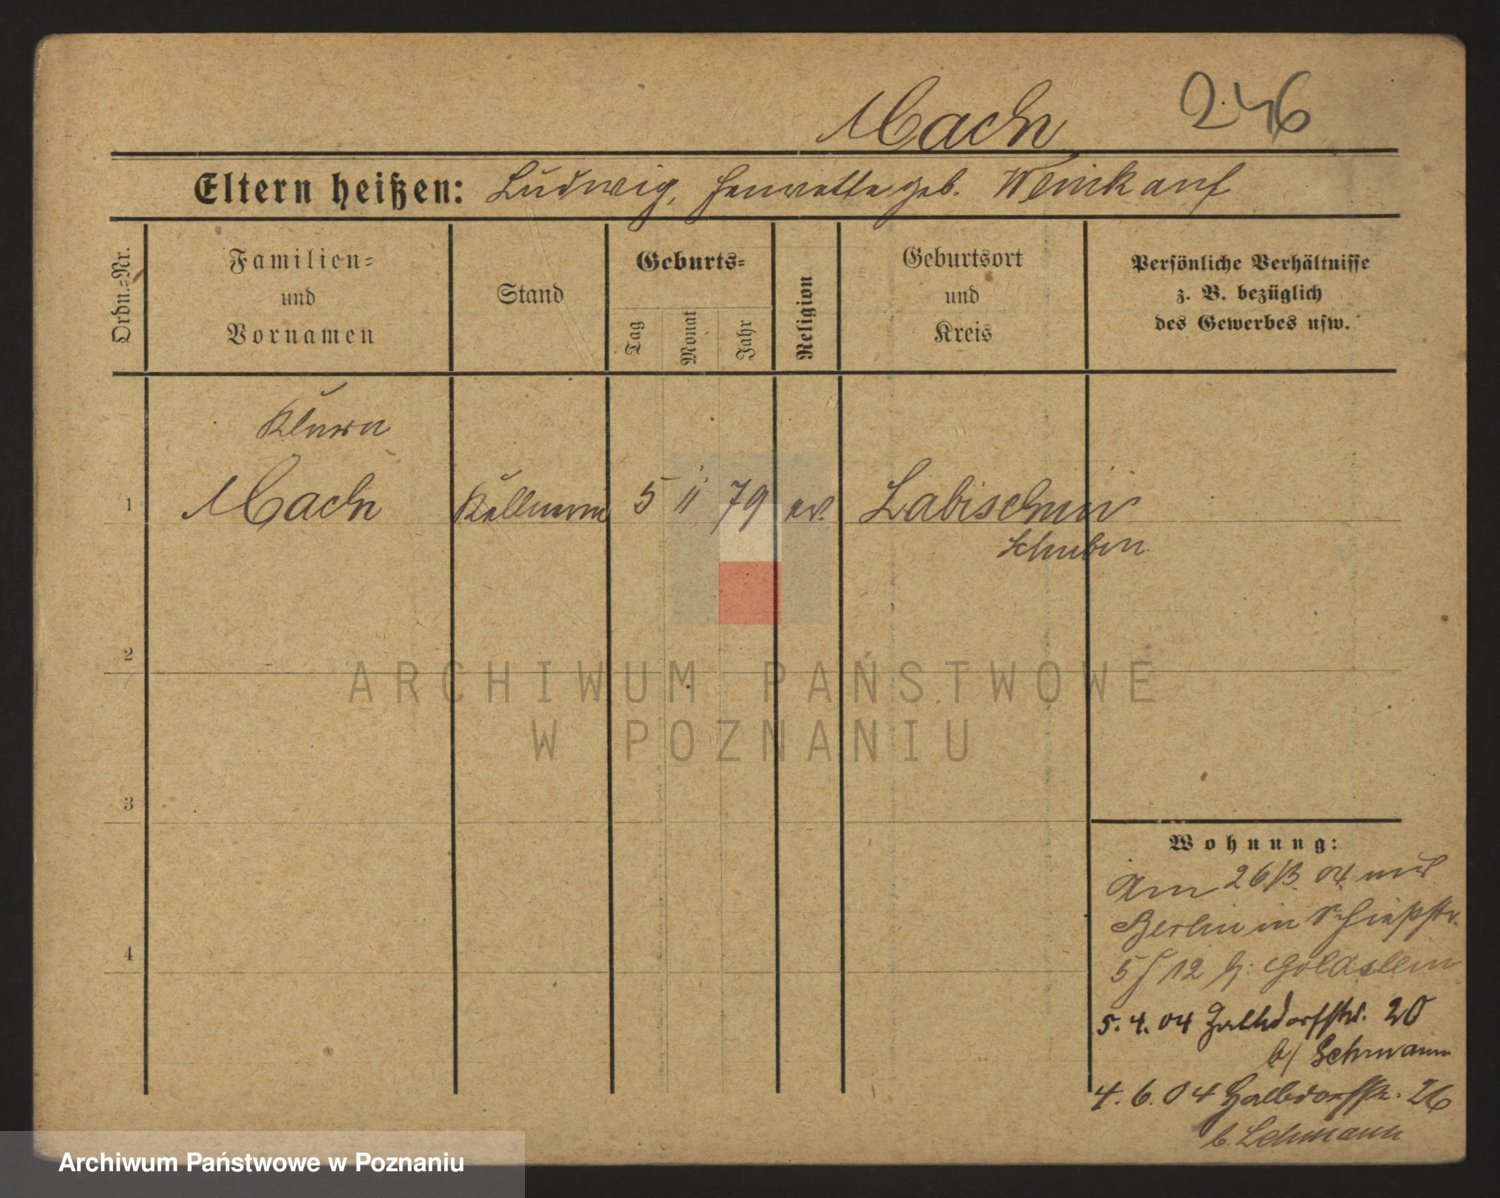 Mach 246
Eltern heißen: Ludwig, Henriette geb. Weinkauf
Ordn.-Nr.
Familien-
und
Vornamen
Stand
Geburts-
Tag
Monat
Jahr
Religion
Geburtsort
und
Kreis
Persönliche Verhältnisse
z. B. bezüglich
des Gewerbes usw.
1 Mach Kellnerin 5 11 79 ev. Labischin
Schubin
2
3
4
ARCHIWUM PAŃSTWOWE
W POZNANIU
Wohnung:
Am 26/3. 04 aus
Berlin in Schießstr.
5 / 12 b. Goldstein
5. 4. 04 Halbdorfstr. 20
b/ Lehmann
4. 6. 04 Halbdorfstr. 26
b. Lehmann
Archiwum Państwowe w Poznaniu